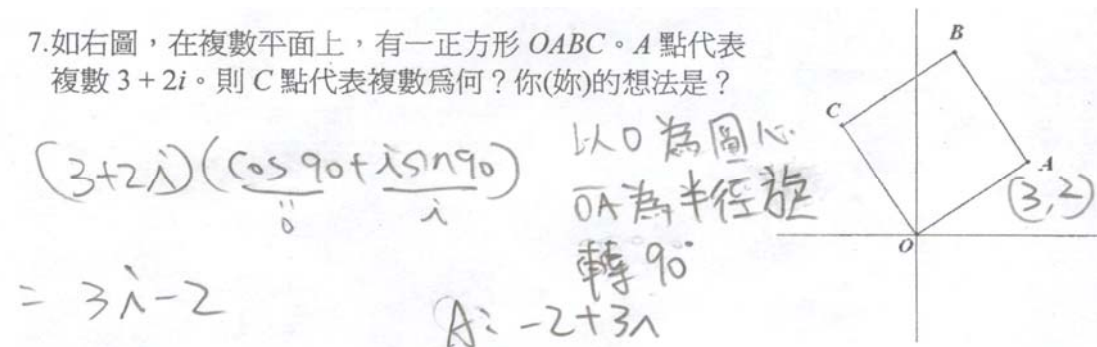 7.如右圖，在複數平面上，有一正方形 OABC。A 點代表
複數 3 + 2i。則 C 點代表複數爲何？你(妳)的想法是？
(3+2i)(cos 90+isin90)
0 i
= 3i-2
以O為圓心
OA為半徑旋
轉 90°
A: -2+3i
B
C
A
(3,2)
O